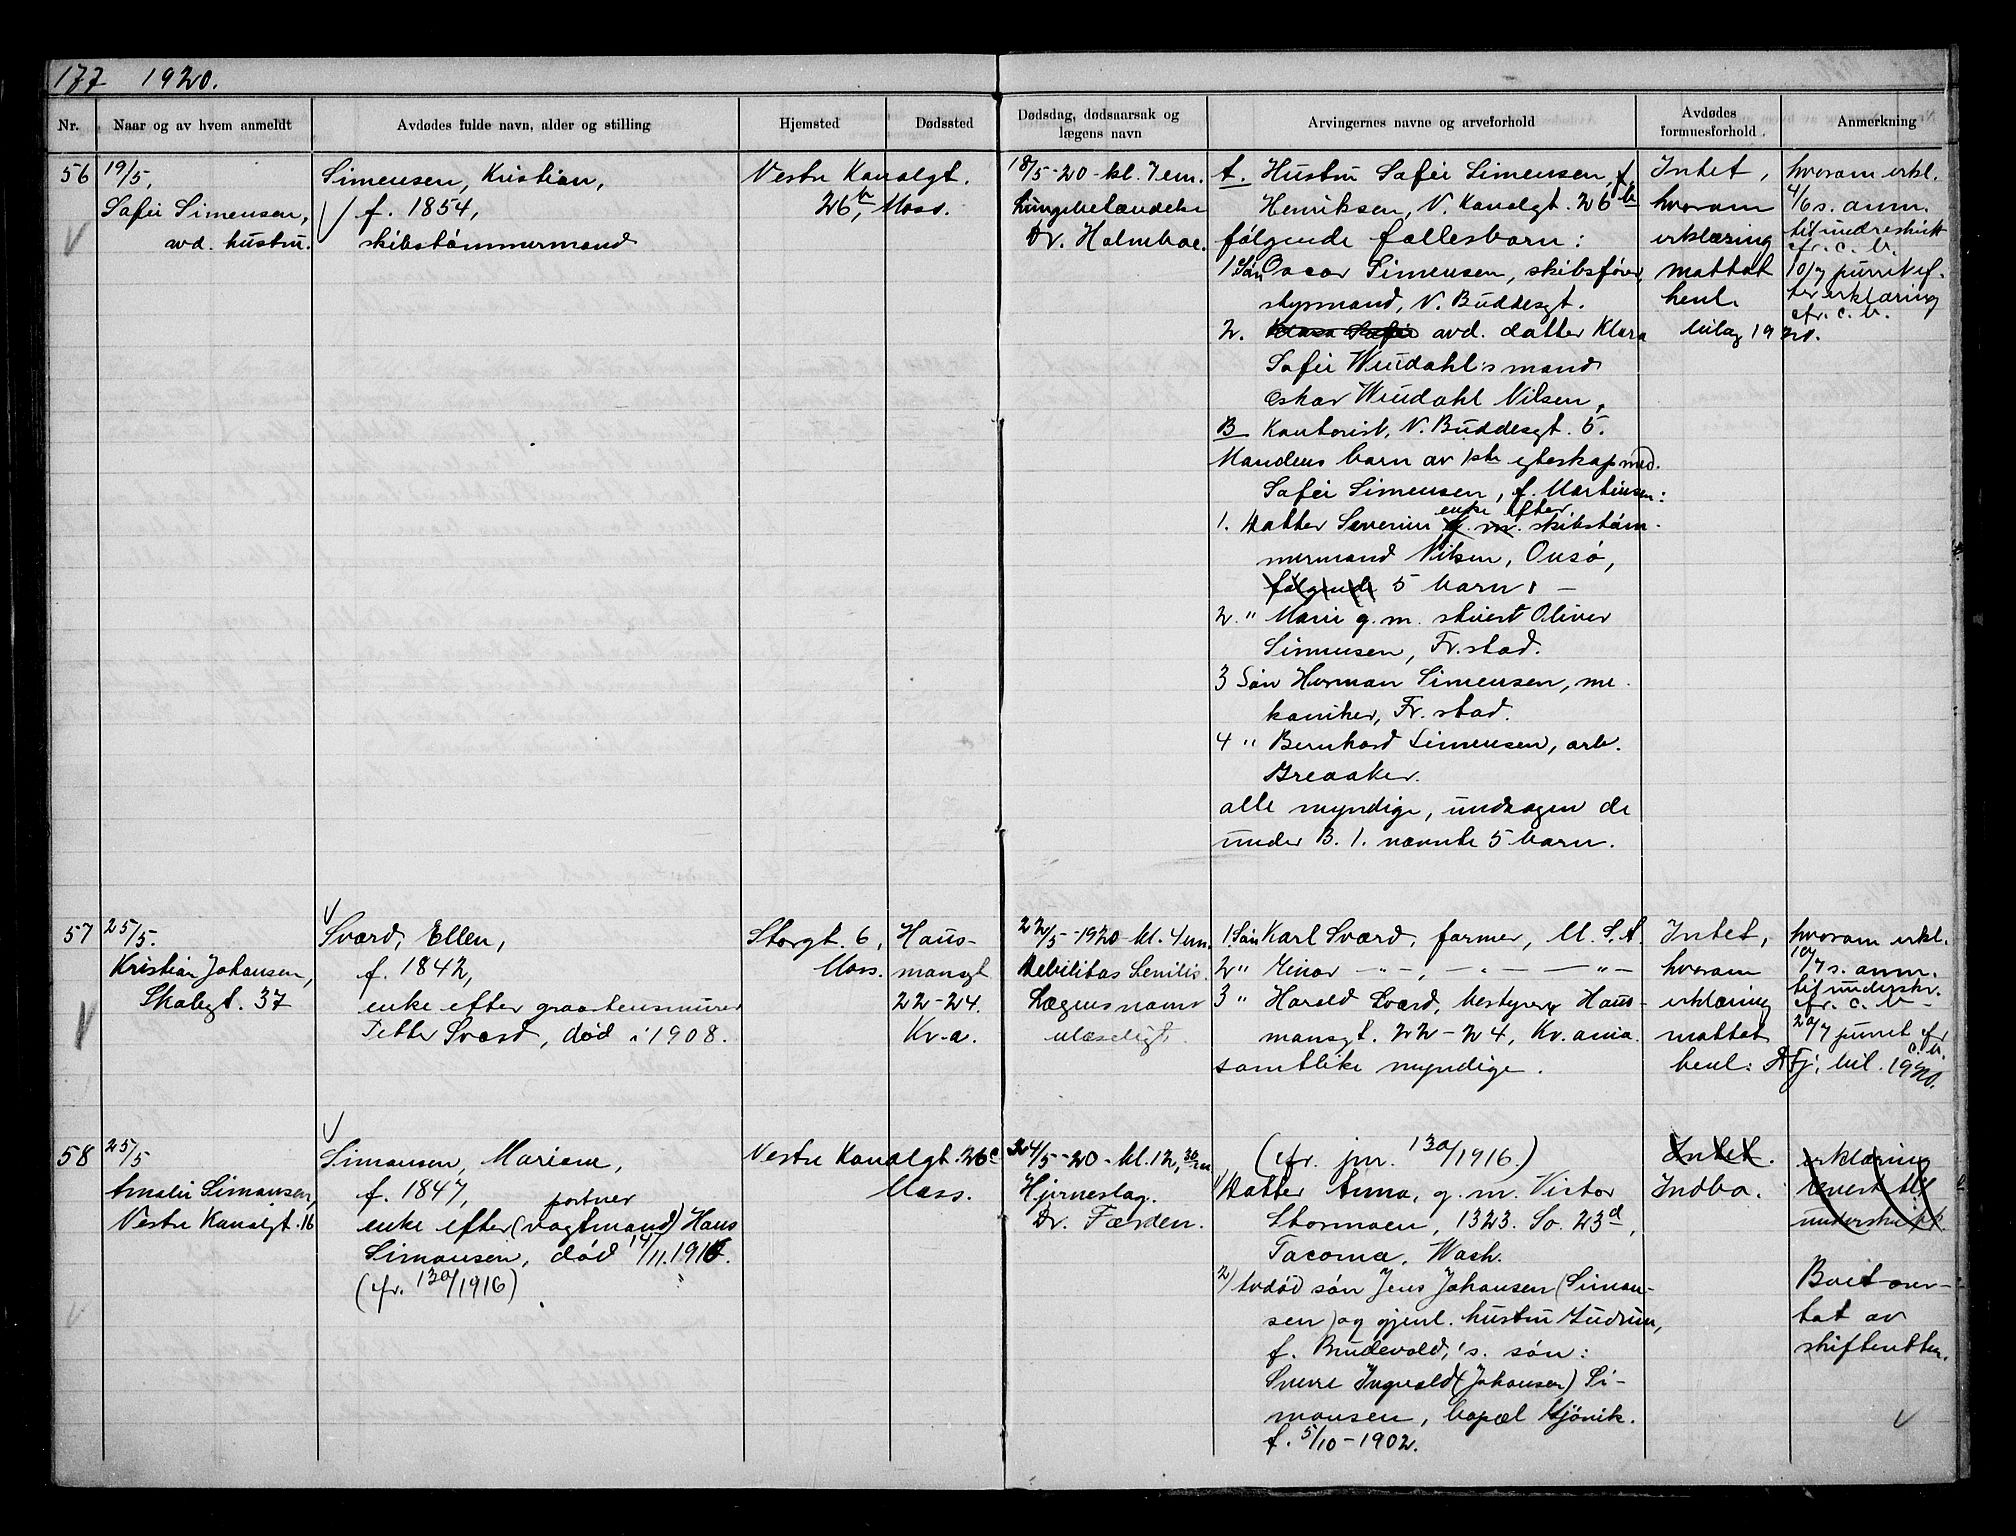 177 1920.
Nr.
Naar og av hvem anmeldt
Avdødes fulde navn, alder og stilling
Hjemsted
Dødssted
Dødsdag, dødsaarsak og
lægens navn
Arvingernes navne og arveforhold
Avdødes
formuesforhold.
Anmerkning
56
19/5.
Sofie Simensen,
avd. hustru.
Simensen, Kristian,
f. 1854,
skibstømmermand
Vestre Kanalgt.
26b, Moss.
18/5-20-kl. 7 em.
Lungebetændelse
Dr. Holmboe.
A. Hustru Sofie Simensen, f.
Henriksen, V. Kanalgt. 26b
følgende fællesbarn:
1 Søn Oscar Simensen, skibsfører,
styrmand, V. Buddesgt.
2. Klara Sofie avd. datter Klara
Sofie Wiudahl's mand
Oskar Wiudahl Nilsen,
B Kontorist, V. Buddesgt. 5.
Mandens barn av 1ste egteskap med.
Sofie Simensen, f. Martinsen:
enke efter
1. Datter Severine g. m. skibstøm-
mermand Nilsen, Onsø,
følgende 5 barn: -
2. " Marie g. m. stuert Oliver
Simensen, Fr.stad.
3 Søn Herman Simensen, me-
kaniker, Fr.stad.
4 " Bernhard Simensen, arb.
Greaaker.
alle myndige, undtagen de
under B. 1. nævnte 5 barn.
Intet,
hvorom
erklæring
mottat
henl.
bilag 1920.
hvorom erkl.
4/6 s. anm.
til underskrift
cfr. c. b.
10/7 purret ef-
ter erklæring
cfr. c. b.
57
25/5.
Kristian Johansen,
Skolegt. 37
Sværd, Ellen,
f. 1842,
enke efter graastensmurer
Petter Sværd, død i 1908.
Storgt. 6,
Moss.
Haus-
mansgt
22-24.
Kr.a.
22/5-1920 kl. 4 em.
Debilitas Senilis.
Lægens navn
ulæseligt.
1. Søn Karl Sværd, farmer, U. S. A.
2 " Einar -"-, -"- -"-
3 " Harald Sværd, bestyrer, Haus-
mansgt. 22-24, Kr.ania.
samtlike myndige.
Intet,
hvorom
erklæring
mottat
henl:
hvorom erkl.
10/7 s. anm.
til underskr.
cfr. c. b -
20/7 purret cfr
c. b.
bil. 1920.
58
25/5
Amalie Simonsen,
Vestre Kanalgt. 16
Simonsen, Mariane,
f. 1847,
portner
enke efter (vagtmand) Hans
Simonsen, død 14/11.1916.
(cfr. 130/1916)
Vestre Kanalgt. 26c
Moss.
24/5-20-kl. 12,30 m
Hjerneslag.
Dr. Færden.
(cfr. jnr. 130/1916.)
1) Datter Anna, g. m. Victor
Stormoen, 1323. So. 23d,
Tacoma, Wash.
2) Avdød søn Jens Johansen (Simon-
sen) og gjenl. hustru Gudrun,
f. Brudevold,'s. søn:
Sverre Ingvald (Johansen) Si-
monsen, bopæl Gjøvik.
f. 5/10-1902.
Intet.
Indbo.
erklæring
levert til
underskrift.
Boet over-
tat av
skifteretten.